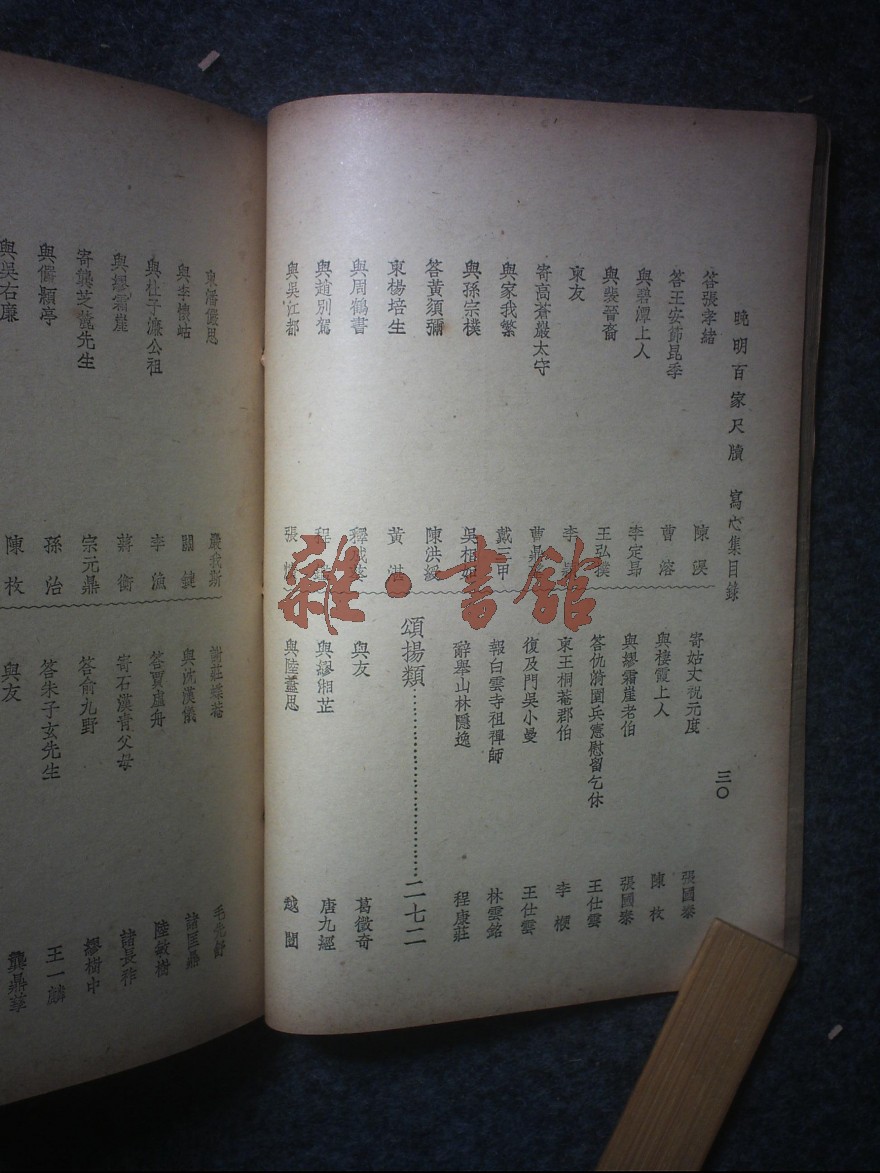 晚明百家尺牘 寫心集目錄
三〇
答張孝緒 陳淏
答王安節昆季 曹溶
與碧潭上人 李定昴
與裴晉裔 王弘撰
柬友 李
寄高蒼巖太守 曹鼎
與家我繁 戴三甲
與孫宗樸 吳相如
答黃須彌 陳洪綬
柬楊培生 黃湛
與周鶴書 釋
與趙別駕 程
與吳江都 張
寄姑丈祝元度 張國泰
與棲霞上人 陳枚
與繆霜崖老伯 張國泰
答仇滄園兵憲慰留乞休 王仕雲
柬王桐菴郡伯 李楩
復及門吳小曼 王仕雲
報白雲寺祖禪師 林雲銘
辭舉山林隱逸 程康莊
頌揚類 二七二
與友 葛徵奇
與繆湘芷 唐九經
與陸藎思 越闓
柬潘儼思 嚴我斯
與李懷岵 關鍵
與杜子濂公祖 李漁
與繆霜崖 蔣衡
寄龔芝麓先生 宗元鼎
與儲穎亭 孫治
與吳右廉 陳枚
謝莊蝶菴 毛先舒
與沈漢儀 諸匡鼎
答賈廬舟 陸敏樹
寄石漢青父母 諸長祚
答俞九野 繆樹中
答朱子玄先生 王一麟
與友 龔鼎孳
雜·書館